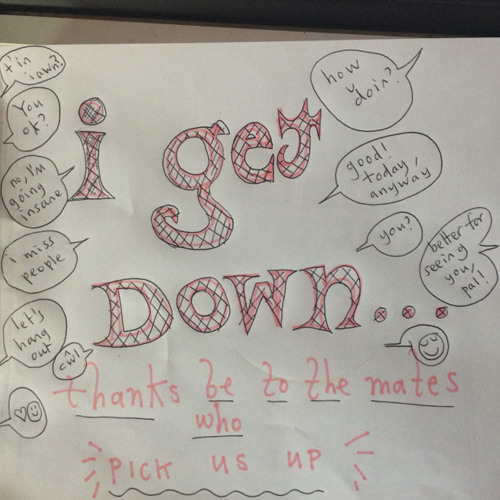 t'in
iawn?
You
ok?
no, I'm
going
insane
i miss
people
let's
hang
out
cŵl
i get
DOWN...
how
u
doin?
good!
today,
anyway
you?
better for
seeing
you,
pal!
thanks be to the mates
who
PICK US UP